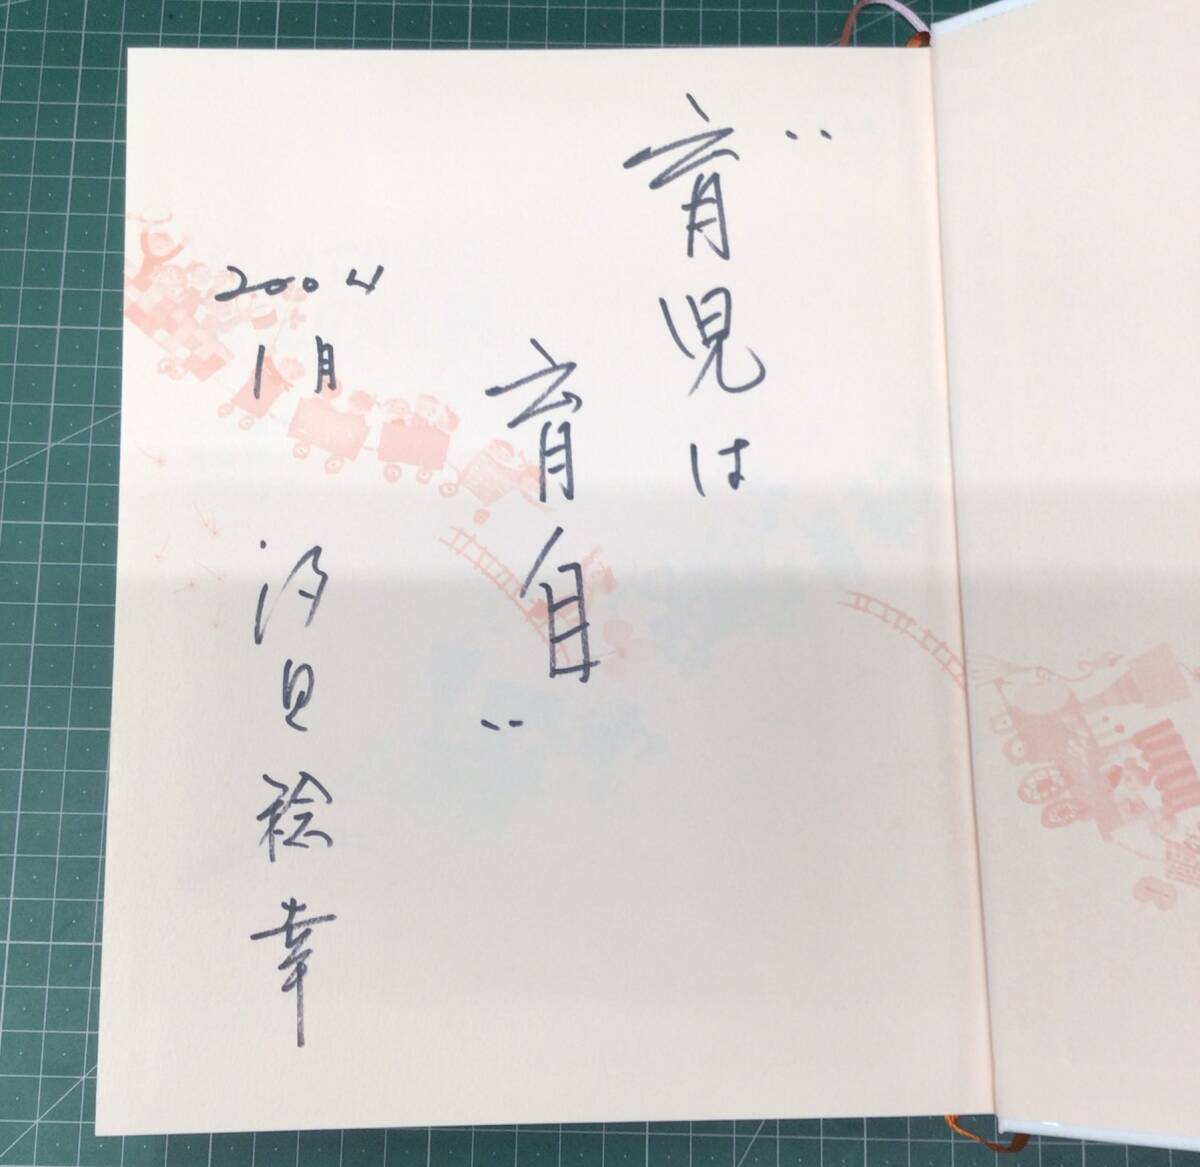 "育児は
育自"
2004
1月
汐見稔幸